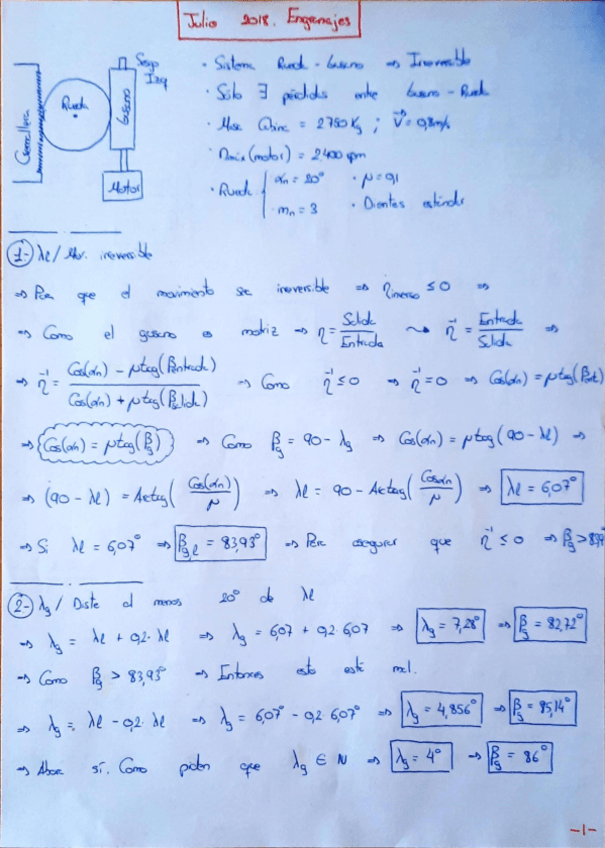 Julio 2018. Engranajes
Sogo
Izq
Cremallera
Rueda
Gusano
Motor
· Sistema Rueda - Gusano ⇒ Irreversible
· Sólo ∃ pérdidas entre Gusano - Rueda
· Masa Cabina = 2750 Kg ; V = 0,8 m/s
· (motor) = 2400 rpm
· Rueda { αn = 20° · μ = 0,1
mn = 3 · Dientes estándar
1- λl / Mov. irreversible
⇒ Para que el movimiento sea irreversible ⇒ η inverso ≤ 0 ⇒
⇒ Como el gusano es motriz ⇒ η = Salida / Entrada ⇝ η⁻¹ = Entrada / Salida ⇒
⇒ η⁻¹ = Cos(αn) - μ tag(βentrada) / Cos(αn) + μ tag(βsalida) ⇒ Como η⁻¹ ≤ 0 ⇒ η⁻¹ = 0 ⇒ Cos(αn) = μ tag(βent)
⇒ Cos(αn) = μ tag(βg) ⇒ Como βg = 90 - λg ⇒ Cos(αn) = μ tag(90 - λl) ⇒
⇒ (90 - λl) = Arctag( Cos(αn) / μ ) ⇒ λl = 90 - Arctag( Cosαn / μ ) ⇒ λl = 6,07°
⇒ Si λl = 6,07° ⇒ βg,l = 83,93° ⇒ Para asegurar que η⁻¹ ≤ 0 ⇒ βg >
2- λg / Diste al menos 20° de λl
⇒ λg = λl + 0,2· λl ⇒ λg = 6,07 + 0,2· 6,07 ⇒ λg = 7,28° ⇒ βg = 82,72°
⇒ Como βg > 83,93° ⇒ Entonces esto está mal.
⇒ λg = λl - 0,2· λl ⇒ λg = 6,07° - 0,2· 6,07° ⇒ λg = 4,856° ⇒ βg = 85,14°
⇒ Ahora sí. Como piden que λg ∈ N ⇒ λg = 4° ⇒ βg = 86°
-1-